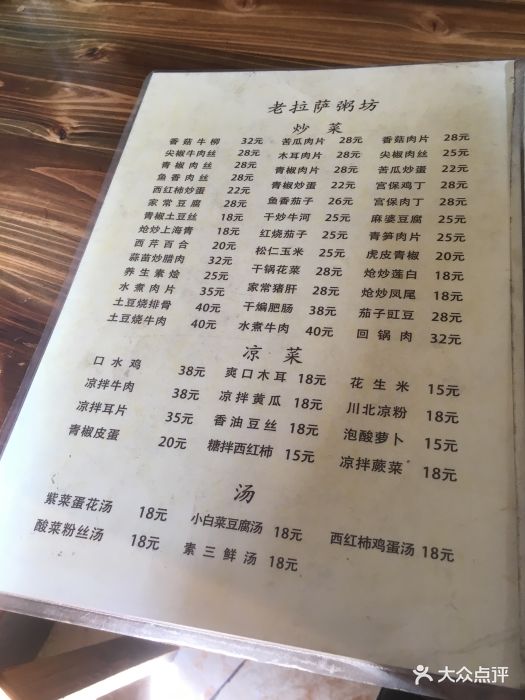 老拉萨粥坊
炒菜
香菇牛柳 32元 苦瓜肉片 28元 香菇肉片 28元
尖椒牛肉丝 28元 木耳肉片 28元 尖椒肉丝 25元
青椒肉丝 28元 青椒肉片 28元 苦瓜炒蛋 22元
鱼香肉丝 28元 青椒炒蛋 22元 宫保鸡丁 28元
西红柿炒蛋 22元 鱼香茄子 26元 宫保肉丁 28元
家常豆腐 28元 干炒牛河 25元 麻婆豆腐 25元
青椒土豆丝 18元 红烧茄子 25元 青笋肉片 25元
炝炒上海青 18元 松仁玉米 25元 虎皮青椒 20元
西芹百合 20元 干锅花菜 28元 炝炒莲白 18元
蒜苗炒腊肉 32元 家常猪肝 28元 炝炒凤尾 18元
养生素烩 25元 干煸肥肠 38元 茄子豇豆 28元
水煮肉片 35元 水煮牛肉 40元 回锅肉 32元
土豆烧排骨 40元
土豆烧牛肉 40元
凉菜
口水鸡 38元 爽口木耳 18元 花生米 15元
凉拌牛肉 38元 凉拌黄瓜 18元 川北凉粉 18元
凉拌耳片 35元 香油豆丝 18元 泡酸萝卜 15元
青椒皮蛋 20元 糖拌西红柿 15元 凉拌蕨菜 18元
汤
紫菜蛋花汤 18元 小白菜豆腐汤 18元 西红柿鸡蛋汤 18元
酸菜粉丝汤 18元 素三鲜汤 18元
大众点评